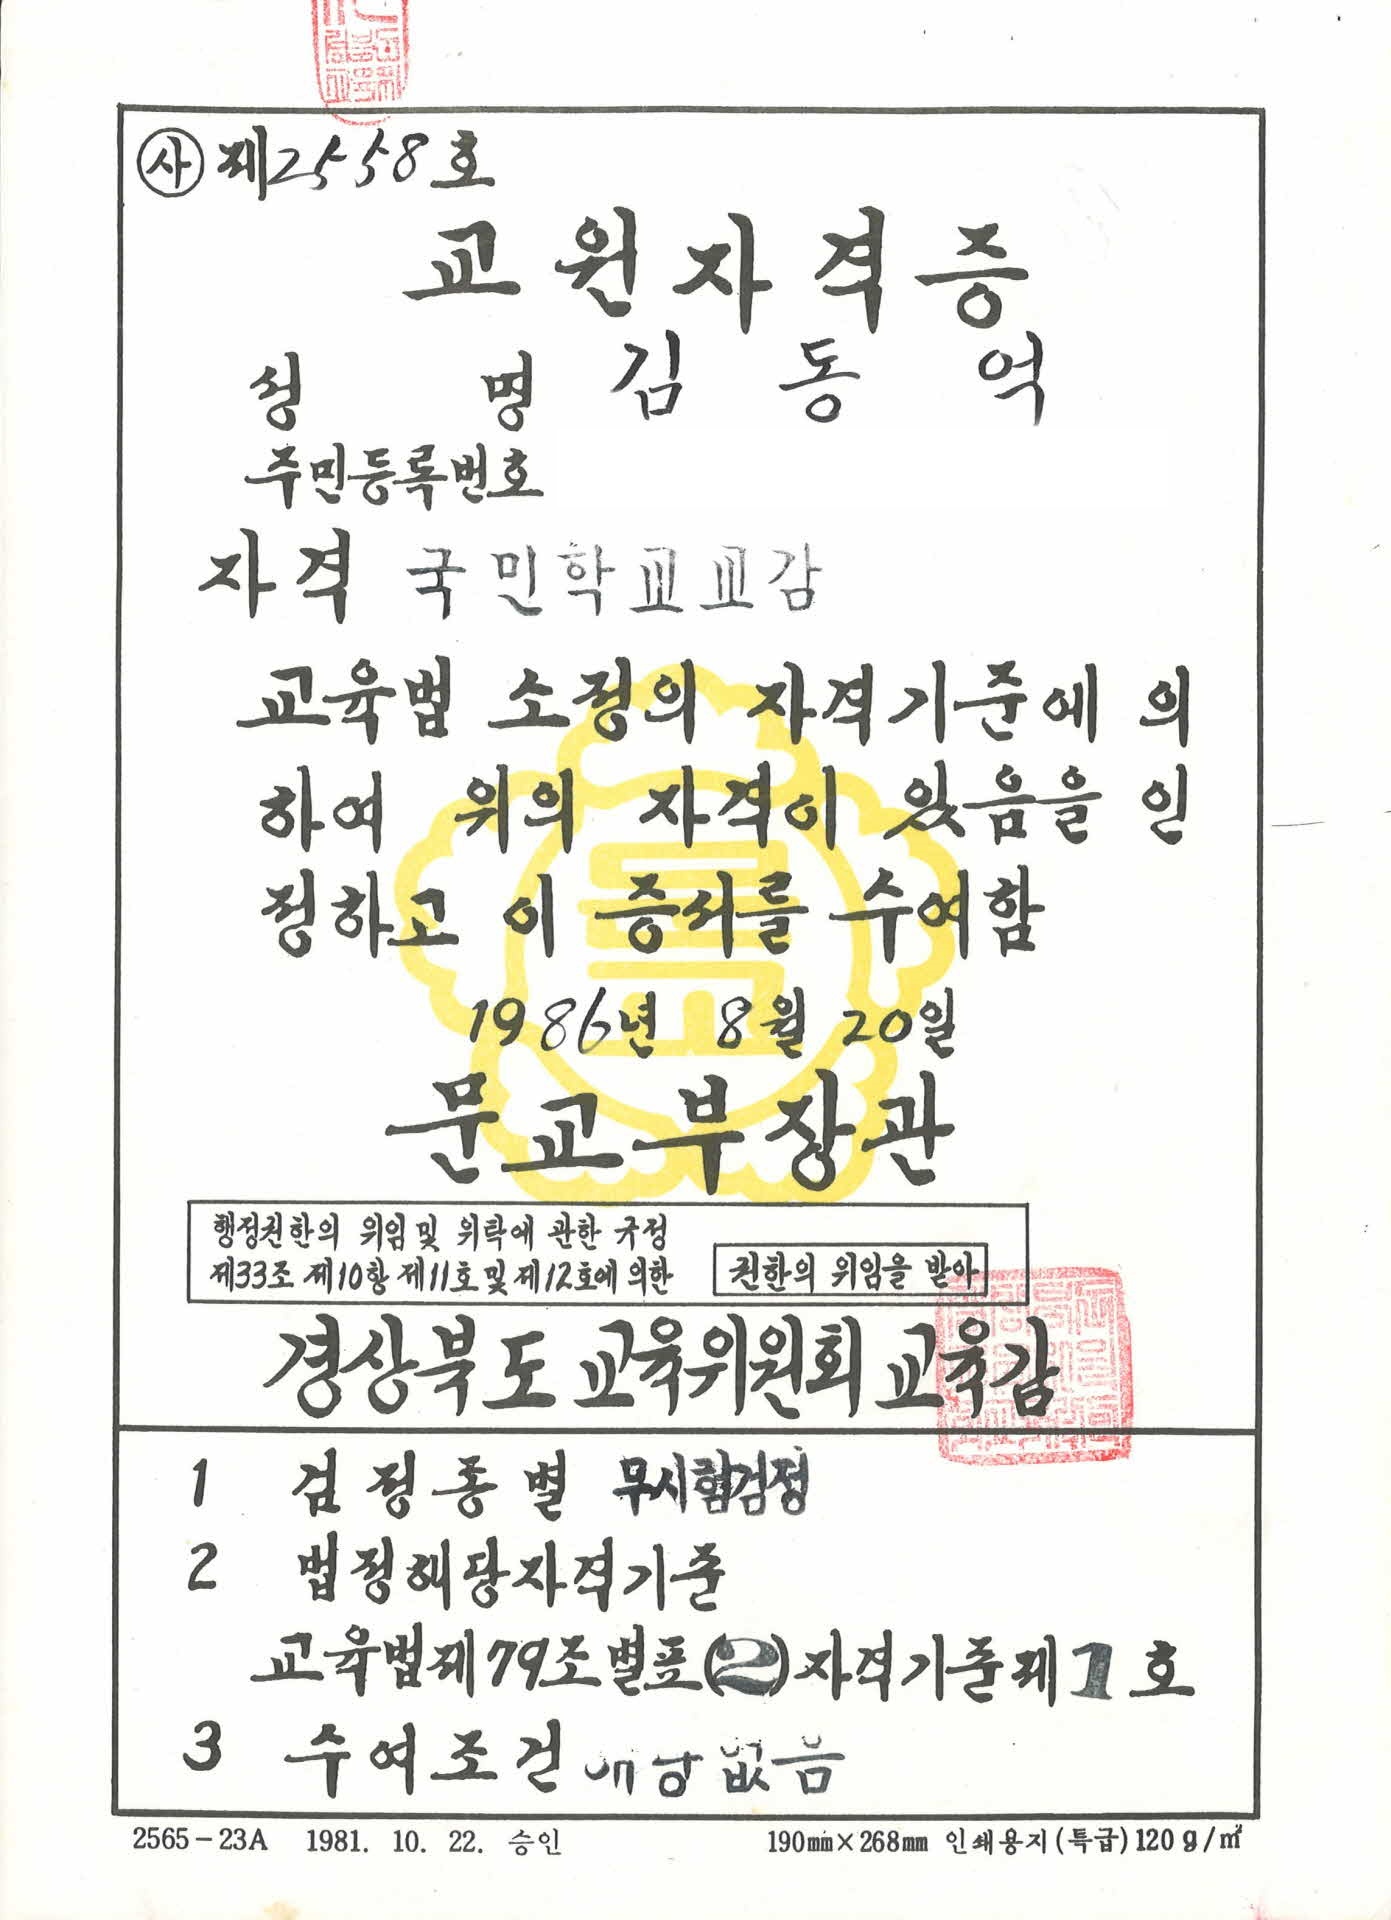 사 제2558호
교원자격증
성 명 김동억
주민등록번호
자격 국민학교교감
교육법 소정의 자격기준에 의
하여 위의 자격이 있음을 인
정하고 이 증서를 수여함
1986년 8월 20일
문교부장관
행정권한의 위임 및 위탁에 관한 규정
제33조 제10항 제11호 및 제12호에 의한 권한의 위임을 받아
경상북도 교육위원회 교육감
1 검정종별 무시험검정
2 법정해당자격기준
교육법제79조별표(2)자격기준제1호
3 수여조건 해당없음
2565-23A 1981. 10. 22. 승인 190㎜×268㎜ 인쇄용지(특급)120g/㎡